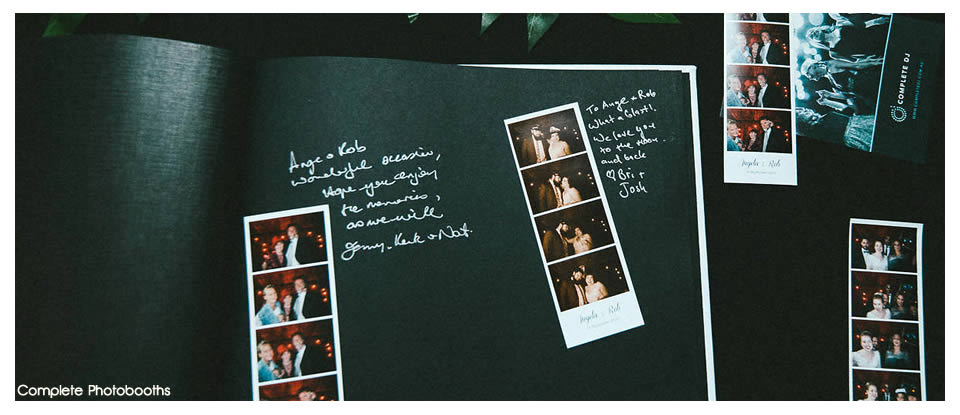 Ange & Rob
wonderful occasion,
hope you enjoy
the memories,
as we will
Jenny - Kerk & Nat.
To Ange & Rob
What a blast!.
We love you
to the moon..
and back
♡ Bri +
Josh
Angela & Rob
Angela & Rob
COMPLETE DJ
Complete Photobooths